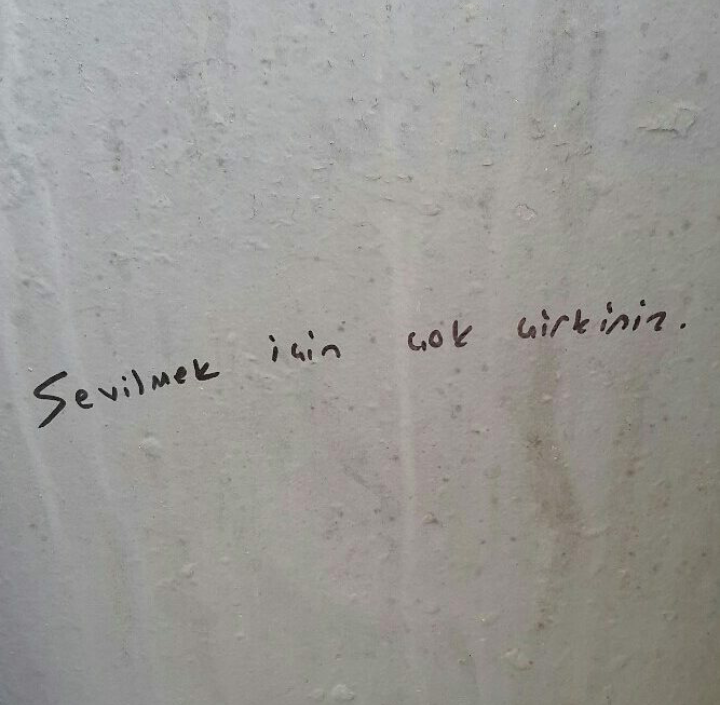 Sevilmek için çok çirkiniz.